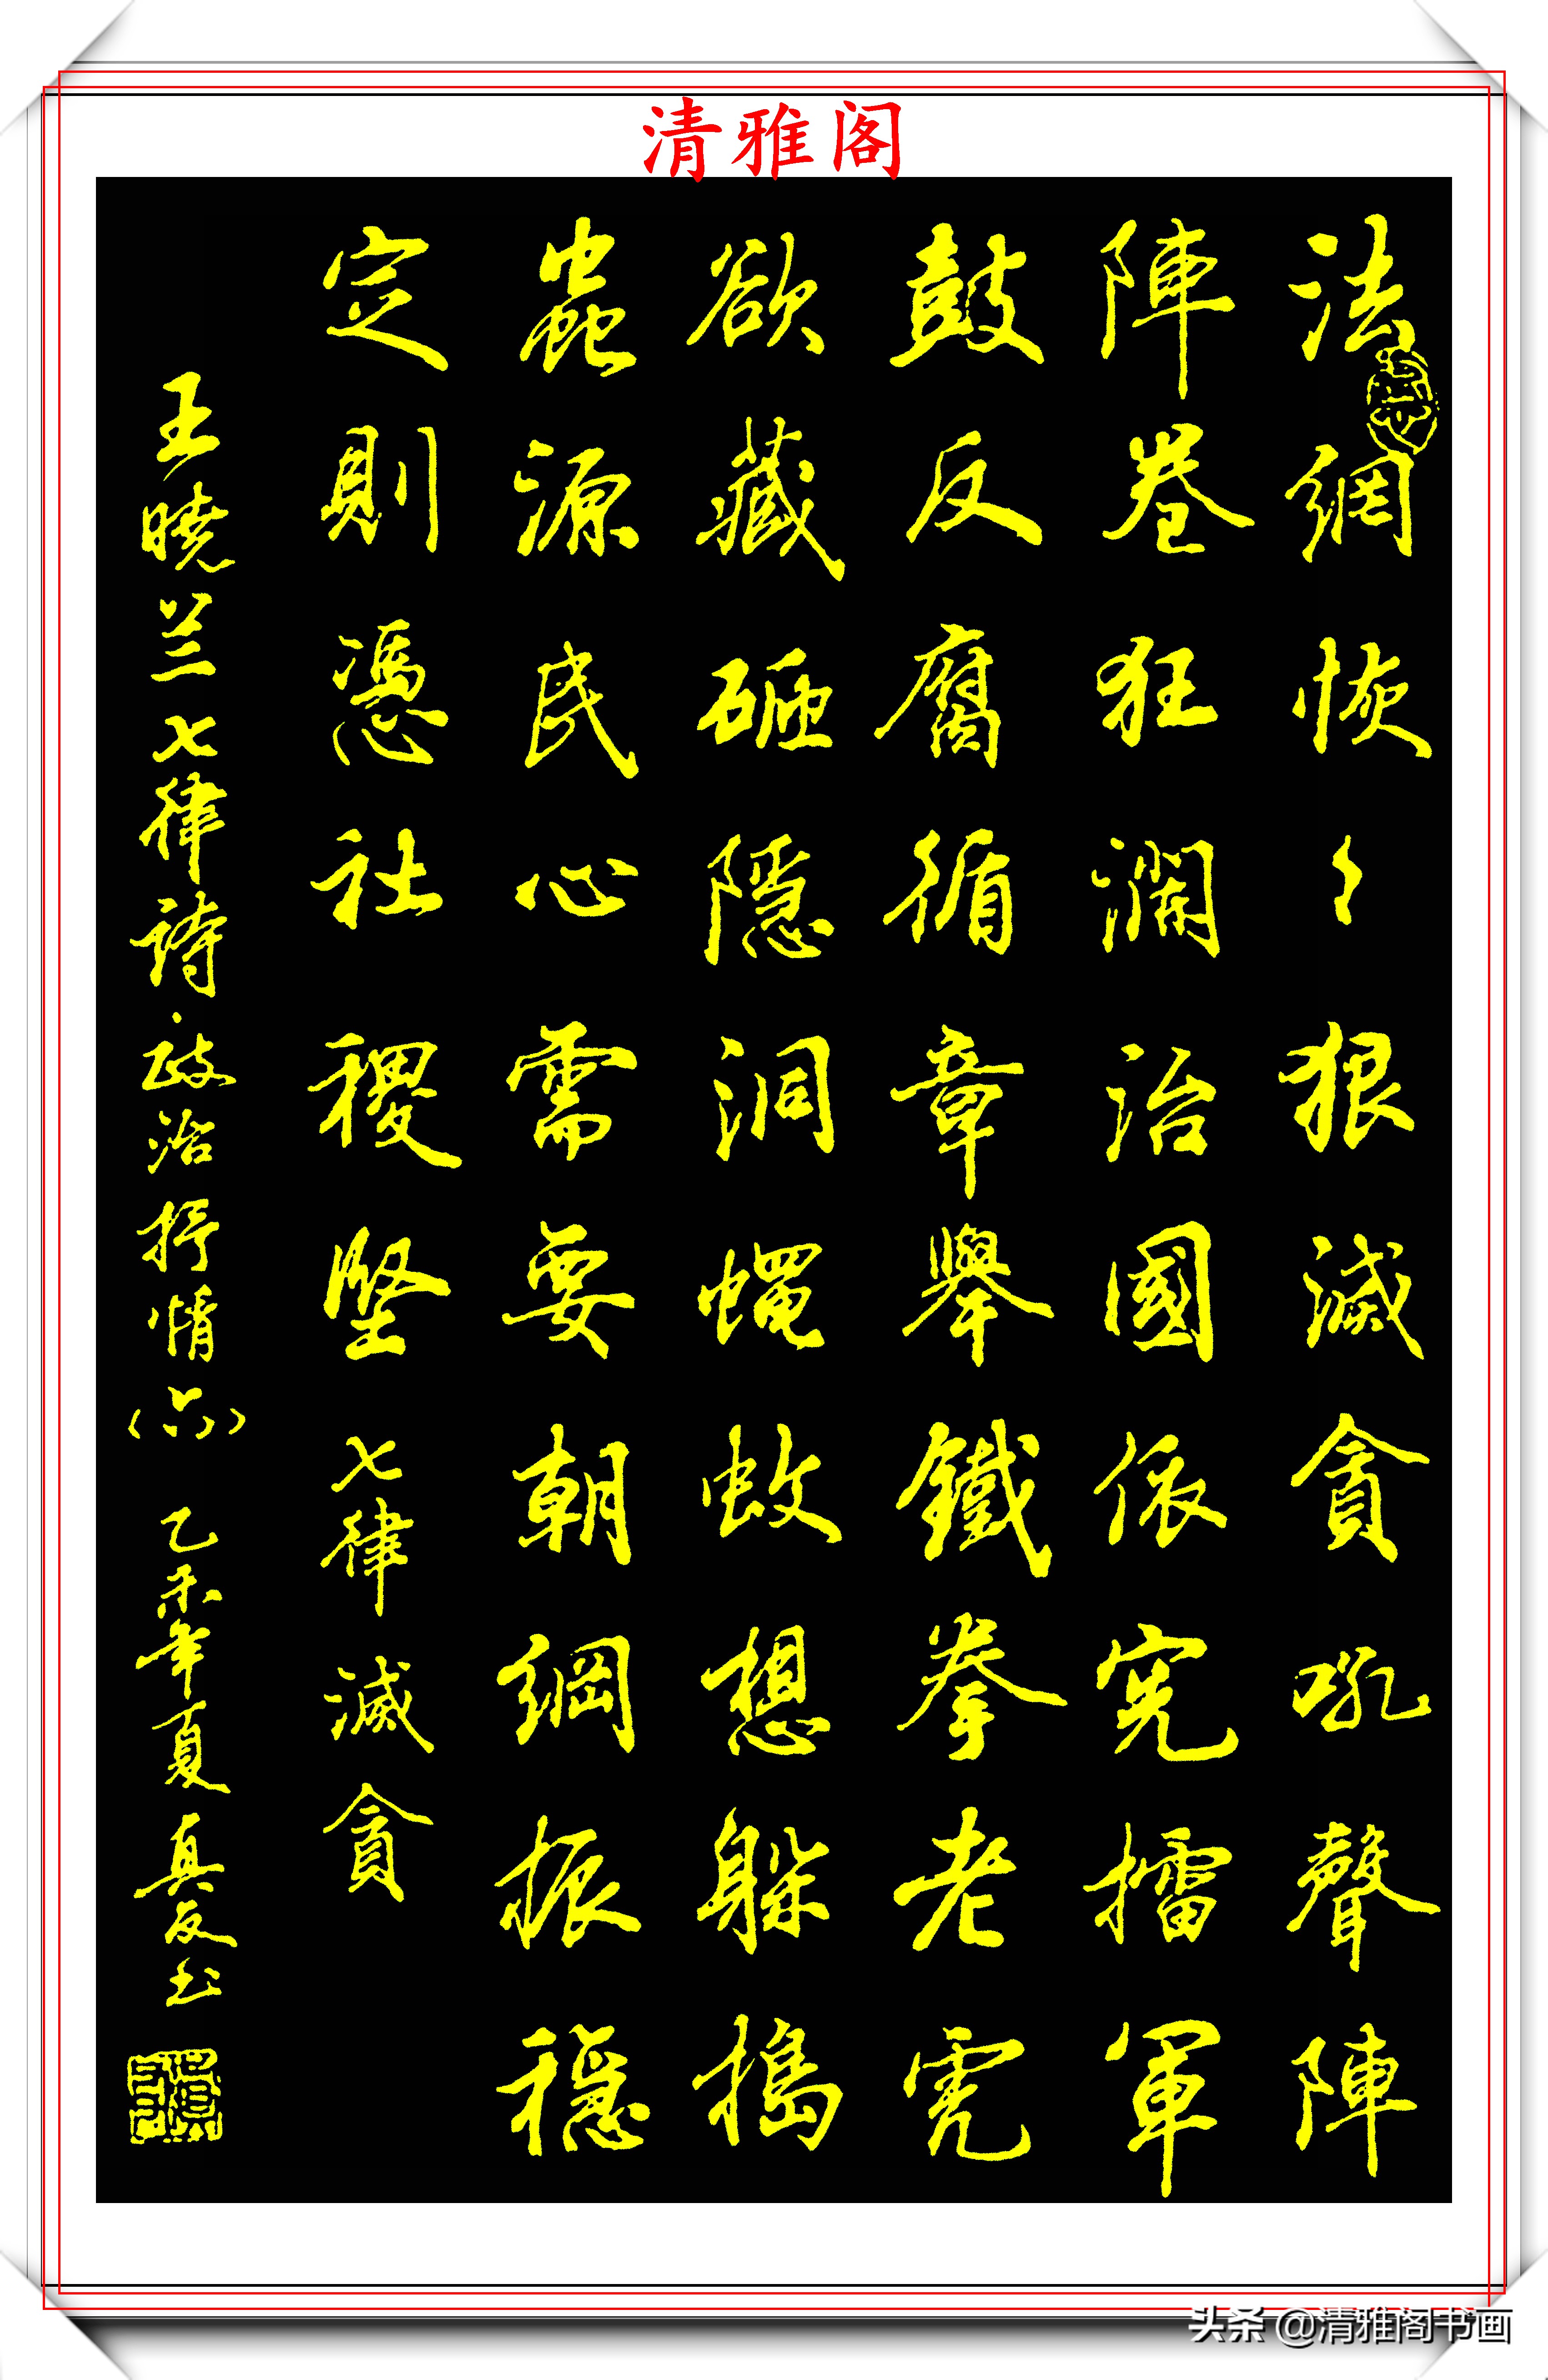 清雅阁
法網恢〻狠滅貪吼聲陣
陣卷狂瀾治國依憲擂軍
鼓反腐循章舉鐵拳老虎
欲藏砸隱洞蝇蚊想躲搗
蟲源民心需要朝綱振穩
定則憑社稷堅七律滅貪
王曉兰七律詩·政治抒情(六)乙未年夏真友书
头条 @清雅阁书画